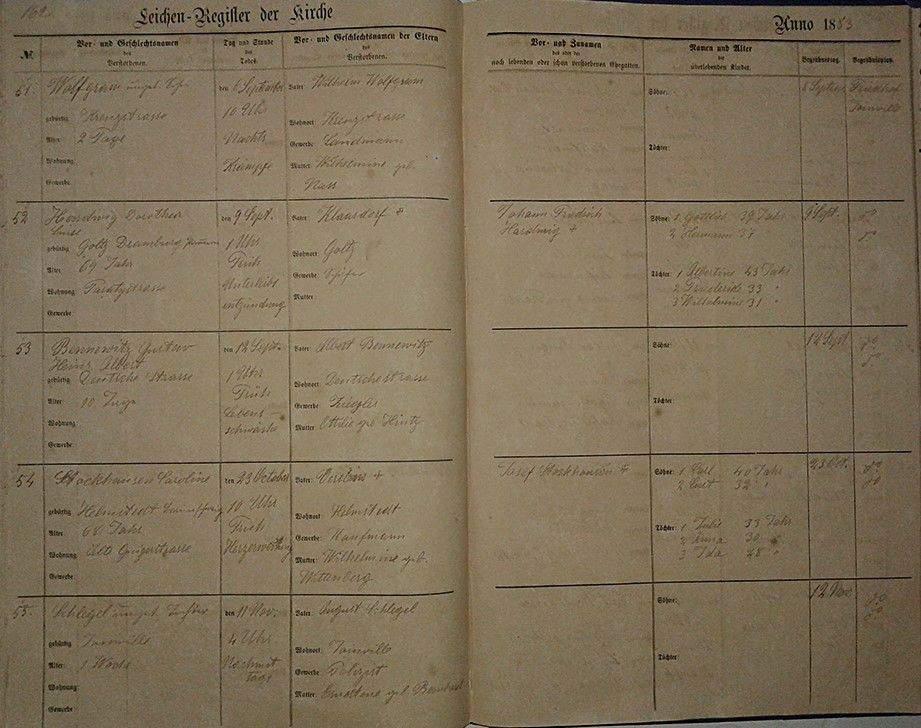 Leichen-Register der Kirche
Anno 1883
№
Vor- und Geschlechtsnamen
des
Verstorbenen.
Tag und Stunde
des
Todes.
Vor- und Geschlechtsnamen der Eltern
des
Verstorbenen.
Vor- und Zunamen
des oder der
noch lebenden oder schon verstorbenen Ehegatten.
Namen und Alter
der
überlebenden Kinder.
Begräbnißtag.
Begräbnißplatz.
51.
Wolfgram ungt.
gebürtig Kreuzstrasse
Alter 2 Tage
Wohnung
Gewerbe
den 6 September
10 Uhr
Nachts
Krämpfe
Vater Wilhelm Wolfgram
Wohnort Kreuzstrasse
Gewerbe Landmann
Mutter Wilhelmine geb.
Söhne:
Töchter:
8 September
Friedhof
52
Dorothea
Luise
gebürtig Goltz Dramburg
Alter 69 Jahr
Wohnung
Gewerbe
den 9 Sept.
1 Uhr
Früh
Unterleibs
entzündung
Vater Klausdorf +
Wohnort Goltz
Gewerbe Schäfer
Mutter
Johann Friedrich
Hardwig +
Söhne 1 Gottlieb 39 Jahr
2 Hermann 37
Töchter 1 Albertine 43 Jahr
2 Friederike 33 "
3 Wilhelmine 31 "
Sept.
do
do
53
Bennewitz Gustav
Heinr Albert
gebürtig Deutsche Strasse
Alter 10 Tage
Wohnung
Gewerbe
den 12 Sept.
1 Uhr
Früh
Lebens-
schwäche
Vater Albert Bennewitz
Wohnort Deutschestrasse
Gewerbe Ziegler
Mutter Ottilie geb Hintz
Söhne:
Töchter:
12 Sept
do
do
54
Stockhausen Caroline
gebürtig Helmstedt
Alter 68 Jahr
Wohnung
Gewerbe
den 23 October
10 Uhr
Früh
Vater +
Wohnort Helmstedt
Gewerbe Kaufmann
Mutter Wilhelmine geb.
Witanberg
Josef Stockhausen +
Söhne 1 Carl 40 Jahr
2 Curt 32 "
Töchter 1 Julie 33 Jahr
2 Anna 30 "
3 Ida 28 "
23 Oct.
do
do
55.
Schlegel ungt. Tochter
gebürtig
Alter 1 Woche
Wohnung
Gewerbe
den 11 Nov.
4 Uhr
Nachmit
tags
Vater August Schlegel
Wohnort
Gewerbe
Mutter geb
Söhne:
Töchter
12 Nov
do
do